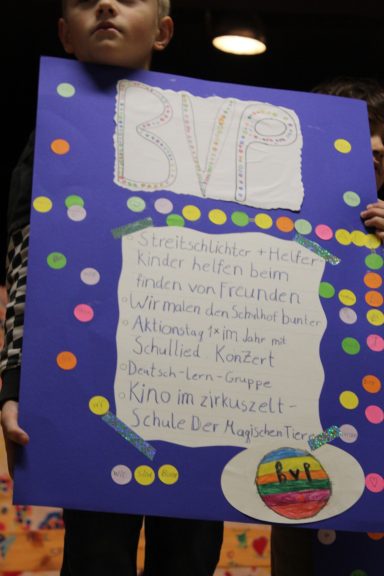 BVP
Streitschlichter + Helfer
Kinder helfen beim
finden von Freunden
Wir malen den Schulhof bunter
Aktionstag 1x im Jahr mit
Schullied, Konzert
Deutsch-Lern-Gruppe
Kino im zirkuszelt -
Schule Der Magischen Tiere
Wir sind Bunt
BVP